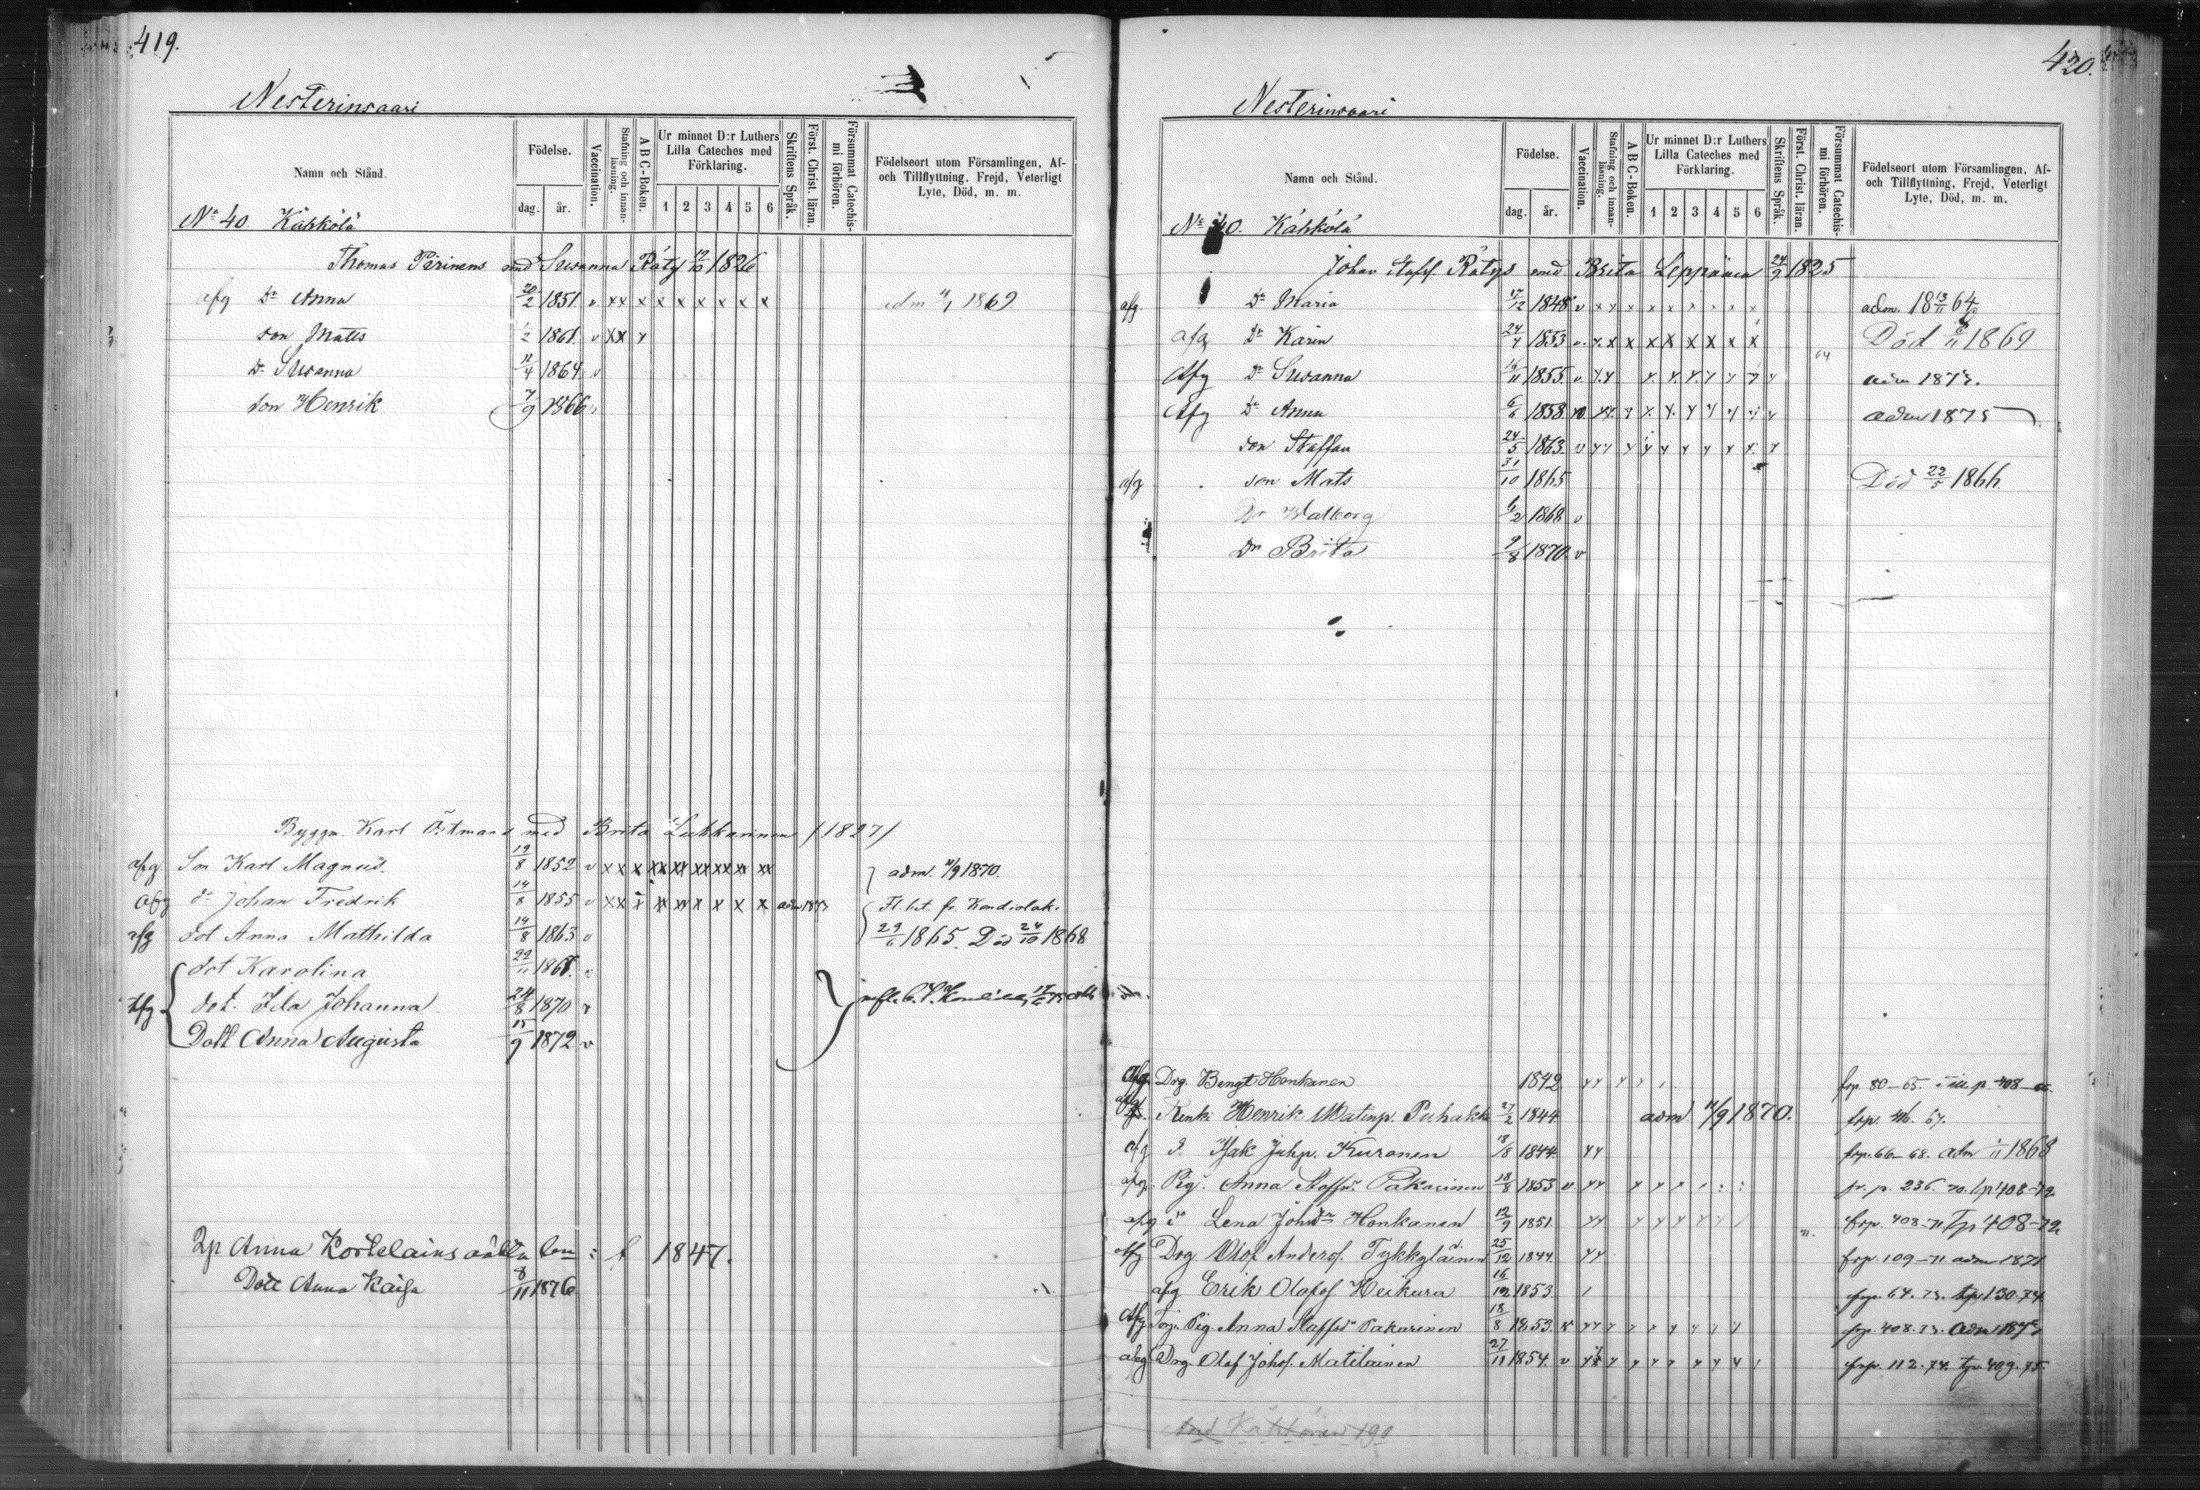 419.
Nesterinsaari
Namn och Stånd.
Födelse.
dag.
år.
Vaccination.
Stafning och innan-läsning.
A B C-Boken.
Ur minnet D:r Luthers Lilla Cateches med Förklaring.
1 2 3 4 5 6
Skriftens Språk.
Först. Christ. läran.
Försummat Catechis-mi förhören.
Födelseort utom Församlingen, Af- och Tillflyttning, Frejd, Veterligt Lyte, Död, m. m.
No 40 Kähkölä
Thomas Pirinens med Susanna Räty 1826
afg Dr Anna 20/2 1851 v xx x x x x x x x adm 1869
son Mats 1/2 1861 v xx x
Dr Susanna 11/4 1864 v
son Henrik 7/9 1866 v
Byggn Karl Östmans med Brita Lukkarinen /1827/
afg Son Karl Magnus 19/8 1852 v xx x xx xx xx xx xx xx adm 11/9 1870.
afg d Johan Fredrik 14/8 1855 v xx x x x x x adm 1873 Fl. bet. fr. Kondiolak.
afg dot Anna Mathilda 14/8 1863 v 29/6 1865. Död 24/10 1868
dot Karolina 22/11 v
afg dot. Johanna 24/8 1870 v
Dott Anna Augusta 15/9 1872 v
Anna Kortelains 1847.
Dott Anna Kaisa 8/11 1876
420.
Nesterinsaari
Namn och Stånd.
Födelse.
dag.
år.
Vaccination.
Stafning och innan-läsning.
A B C-Boken.
Ur minnet D:r Luthers Lilla Cateches med Förklaring.
1 2 3 4 5 6
Skriftens Språk.
Först. Christ. läran.
Försummat Catechis-mi förhören.
Födelseort utom Församlingen, Af- och Tillflyttning, Frejd, Veterligt Lyte, Död, m. m.
No 40. Kähkölä
Johan Stafsf Rätys med Brita Leppänen 24/9 1825
afg. Dr Maria 17/12 1848 v adm. 18 13/11 64
afg Dr Karin 24/4 1853 v. Död 1869
Afg Dr Susanna 1855 v
Afg Dr Anna 6/6 1858 v. adm 1875
son Staffan 24/5 1863 v
afg son Mats 31/10 1865 Död 22/5 1866
Dr Walborg 6/2 1868 v
Dr Brita 9/8 1870 v
afg Drg. Bengt Honkanen 1842 frp. 80-65.
Henrik Matsnp. Puhakka 27/2 1844 adm 11/9 1870. frp. 67.
afg Isak Juhp. Kuronen 18/8 1844 frp. 66-68. adm 1868
afg. Pig. Anna Staffsdr Pakarinen 18/8 1853 v fr. p. 236. 70. tp 408-72
afg Lena Johsdr Honkanen 12/9 1851 frp. 408-71 Tp 408-72
afg Drg Olof Andersf. Tykkyläinen 25/12 1844 frp. 109-71 adm 1871
afg Erik Olofsf Heikura 16/12 1853 frp. 64. 73. tp 130. 74
Afg Pig. Anna Staffsdr Pakarinen 18/8 1853. frp. 408. 73.
afg Drg. Olof Johsf. Matilainen 27/11 1854. v frp. 112. 74. tp. 409. 75